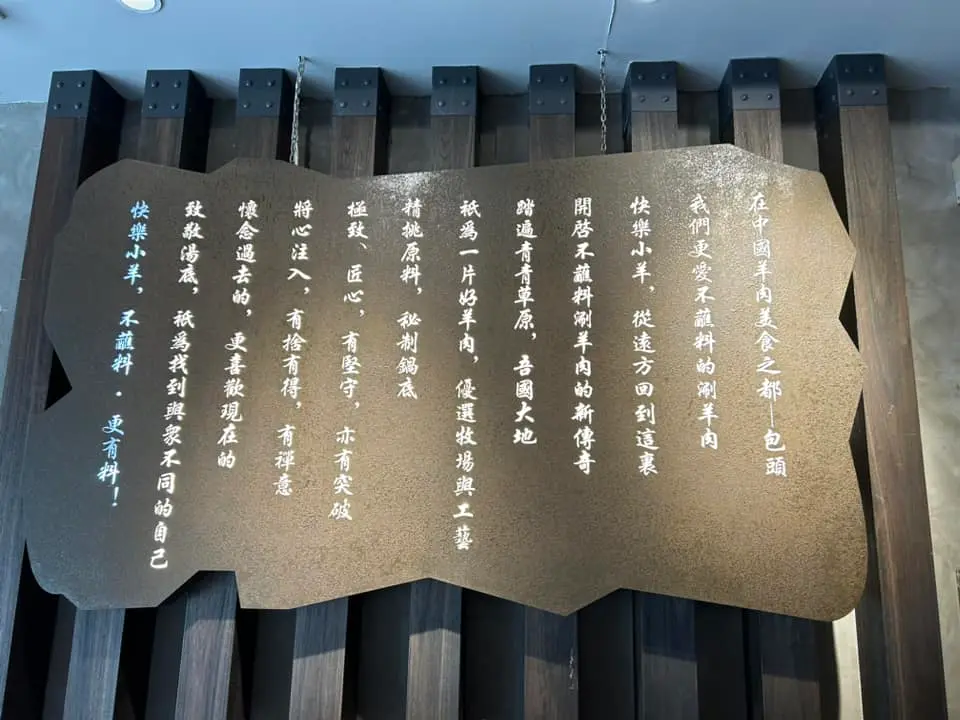 在中國羊肉美食之都—包頭
我們更愛不蘸料的涮羊肉
快樂小羊，從遠方回到這裏
開啓不蘸料涮羊肉的新傳奇
踏遍青青草原，吾國大地
衹為一片好羊肉，優選牧場與工藝
精挑原料，秘制鍋底
極致、匠心，有堅守，亦有突破
將心注入，有捨有得，有禪意
懷念過去的，更喜歡現在的
致敬湯底，衹為找到與眾不同的自己
快樂小羊，不蘸料·更有料！